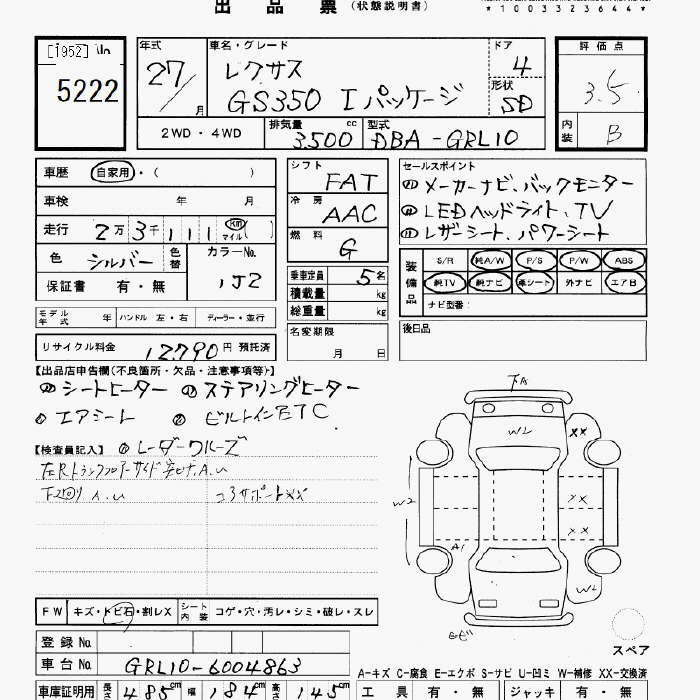 出品票（状態説明書）
*1003323644*
[1952] No
5222
年式 27/ 月
車名・グレード レクサス
GS350 Iパッケージ
ドア 4
形状 SD
2WD・4WD
排気量 3500 cc
型式 DBA-GRL10
評価点 3.5
内装 B
車歴 自家用・（ ）
車検 年 月
走行 2万3千111 km マイル（ ）
色 シルバー 色替 カラーNo. 1J2
保証書 有・無
シフト FAT
冷房 AAC
燃料 G
乗車定員 5名
積載量 kg
総重量 kg
セールスポイント
① メーカーナビ、バックモニター
② LEDヘッドライト、TV
③ レザーシート、パワーシート
装備品 S/R 純A/W P/S P/W ABS
純TV 純ナビ 革シート 外ナビ エアB
ナビ型番：
モデル年式 年 ハンドル 左・右 ディーラー・並行
名変期限 月 日
後日品
リサイクル料金 12790円 預託済
【出品店申告欄(不良箇所・欠品・注意事項等)】
シートヒーター ステアリングヒーター
エアシート ビルトインETC
【検査員記入】 レーダークルーズ
左Rトランクフロアーサイド A.U
下回り A.U コアサポートXX
下A
W2
XX
W2
XX
XX
A1
W2
FW キズ・トビ石・割レX シート内装 コゲ・穴・汚レ・シミ・破レ・スレ
スペア
登録No.
車台No. GRL10-6004863
A-キズ C-腐食 E-エクボ S-サビ U-凹ミ W-補修 XX-交換済
車庫証明用 長さ 485cm 幅 184cm 高さ 145cm
工具 有・無 ジャッキ 有・無